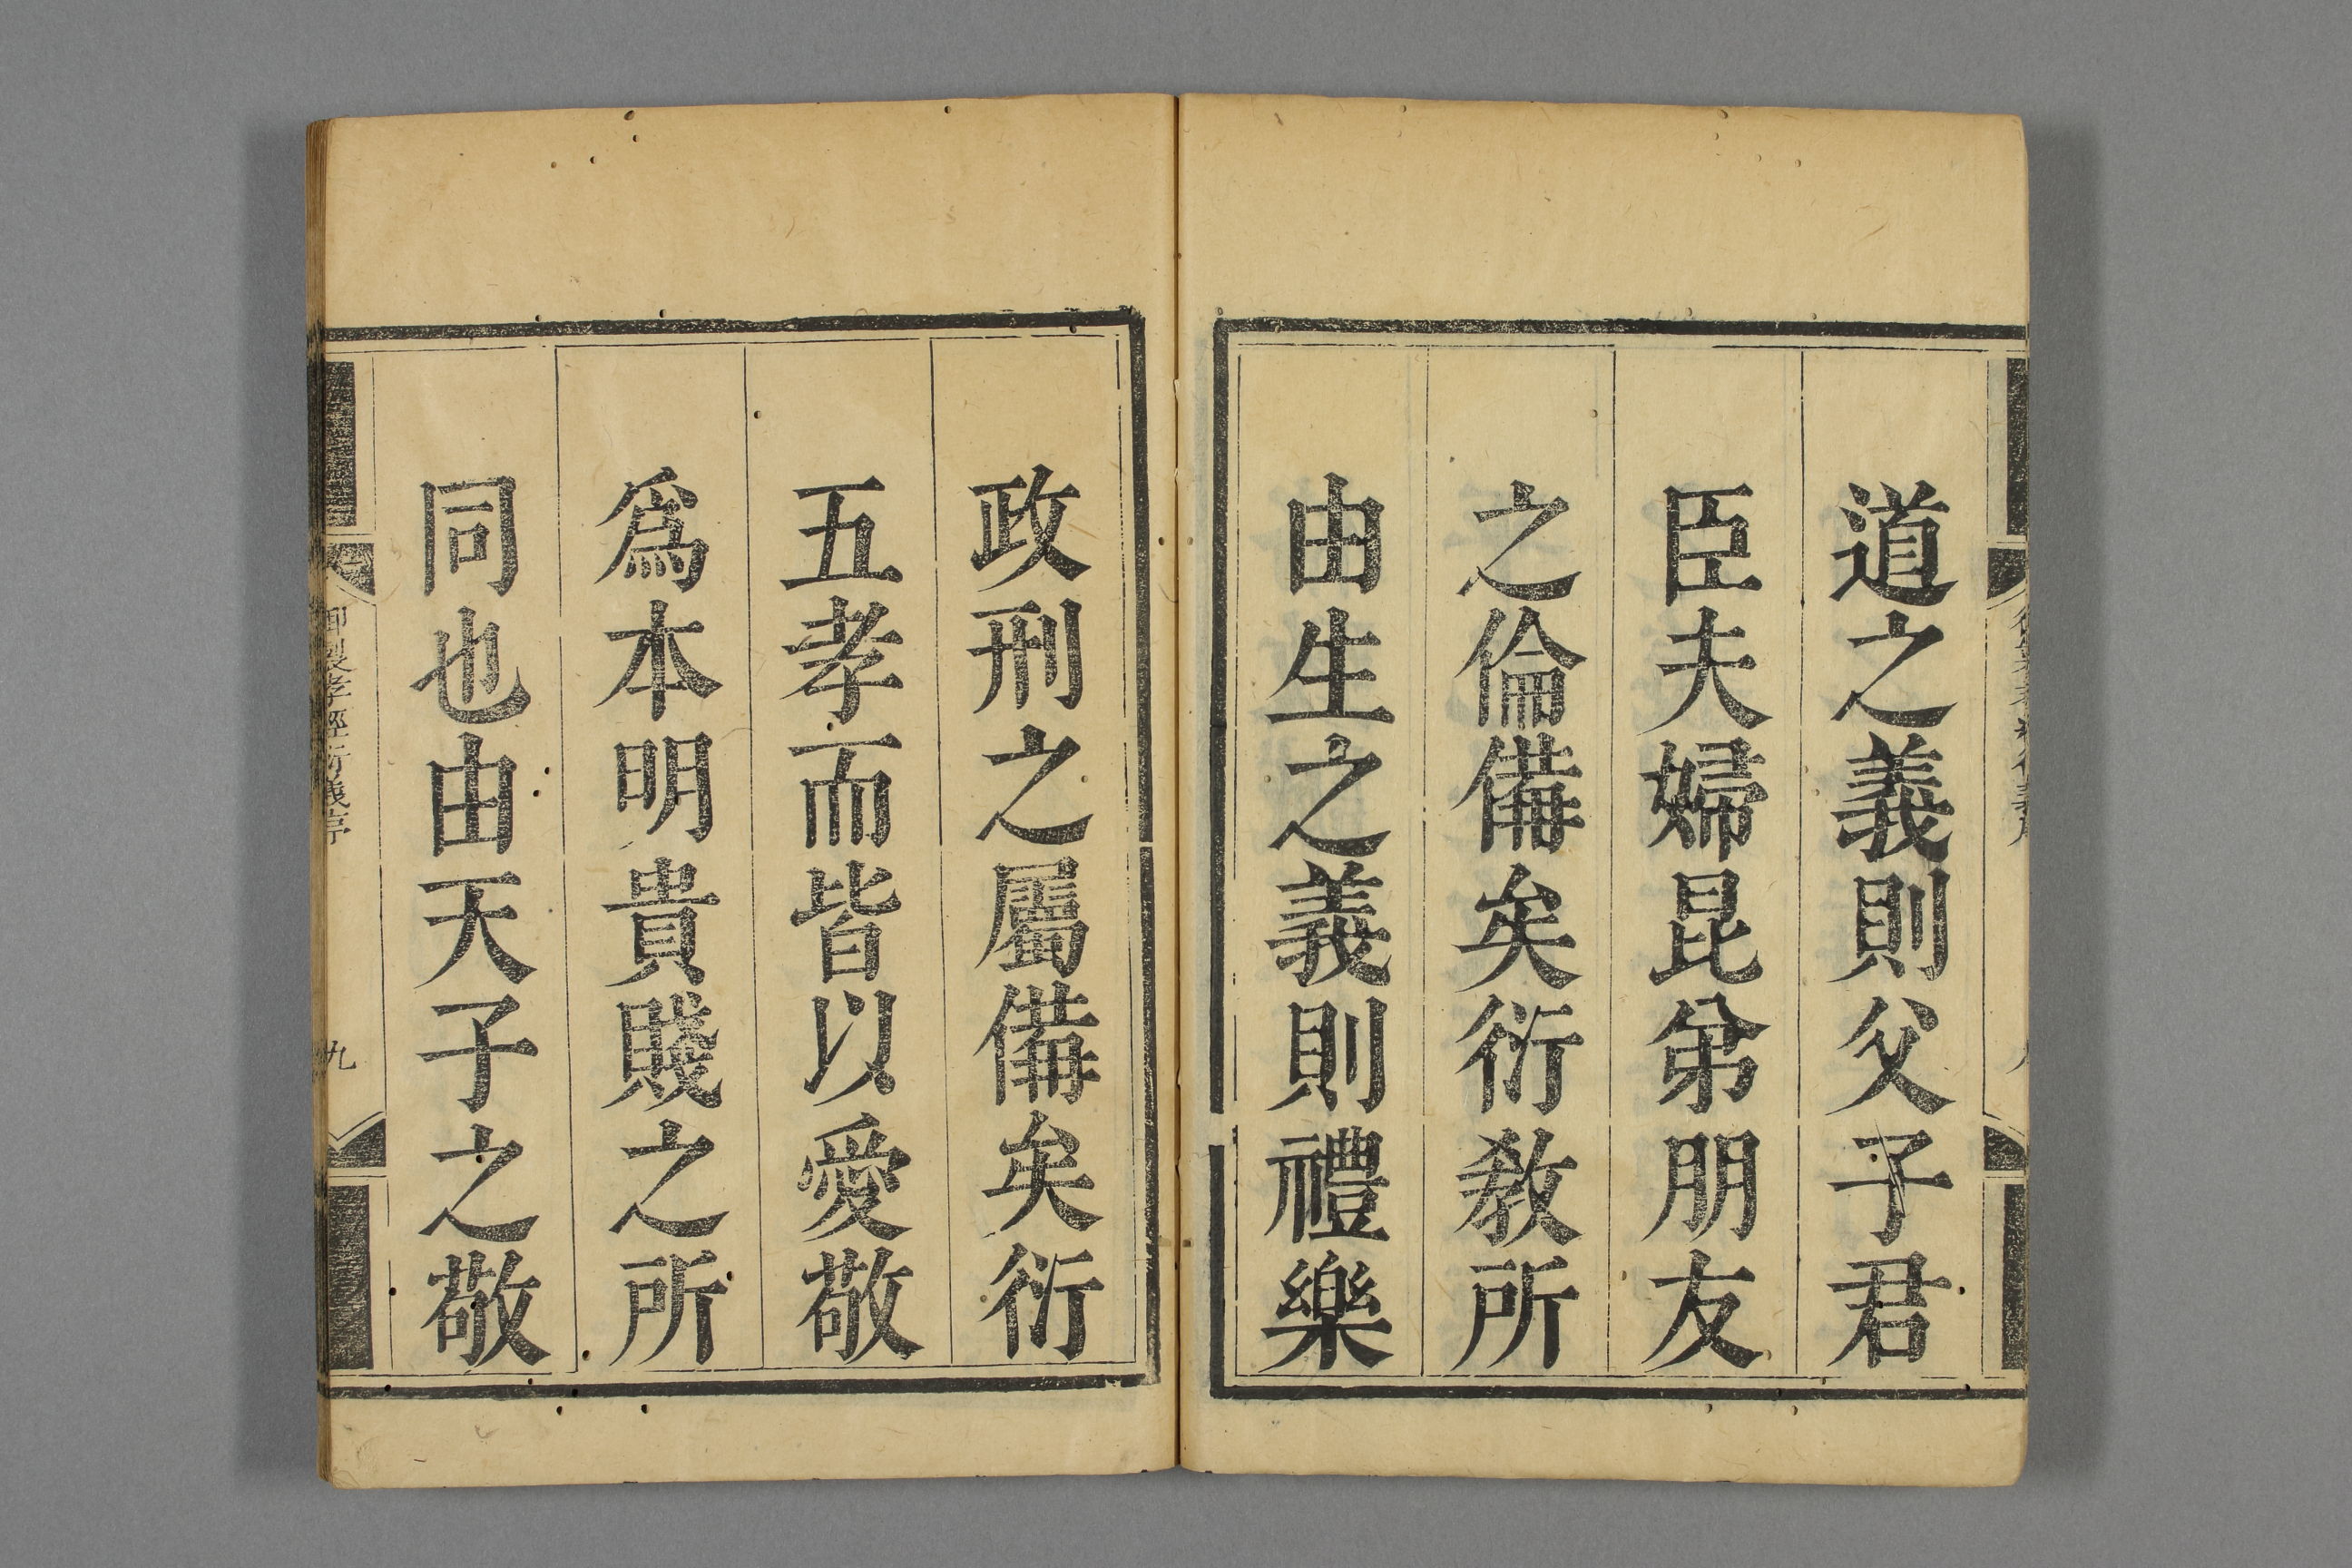 道之義則父子君
臣夫婦昆弟朋友
之倫備矣衍教所
由生之義則禮樂
政刑之屬備矣衍
五孝而皆以愛敬
爲本明貴賤之所
同也由天子之敬
御製孝經衍義序
九